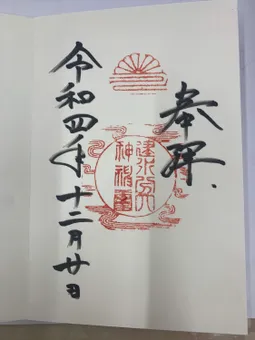 奉拜
建水分
神
令和四年十二月廿日